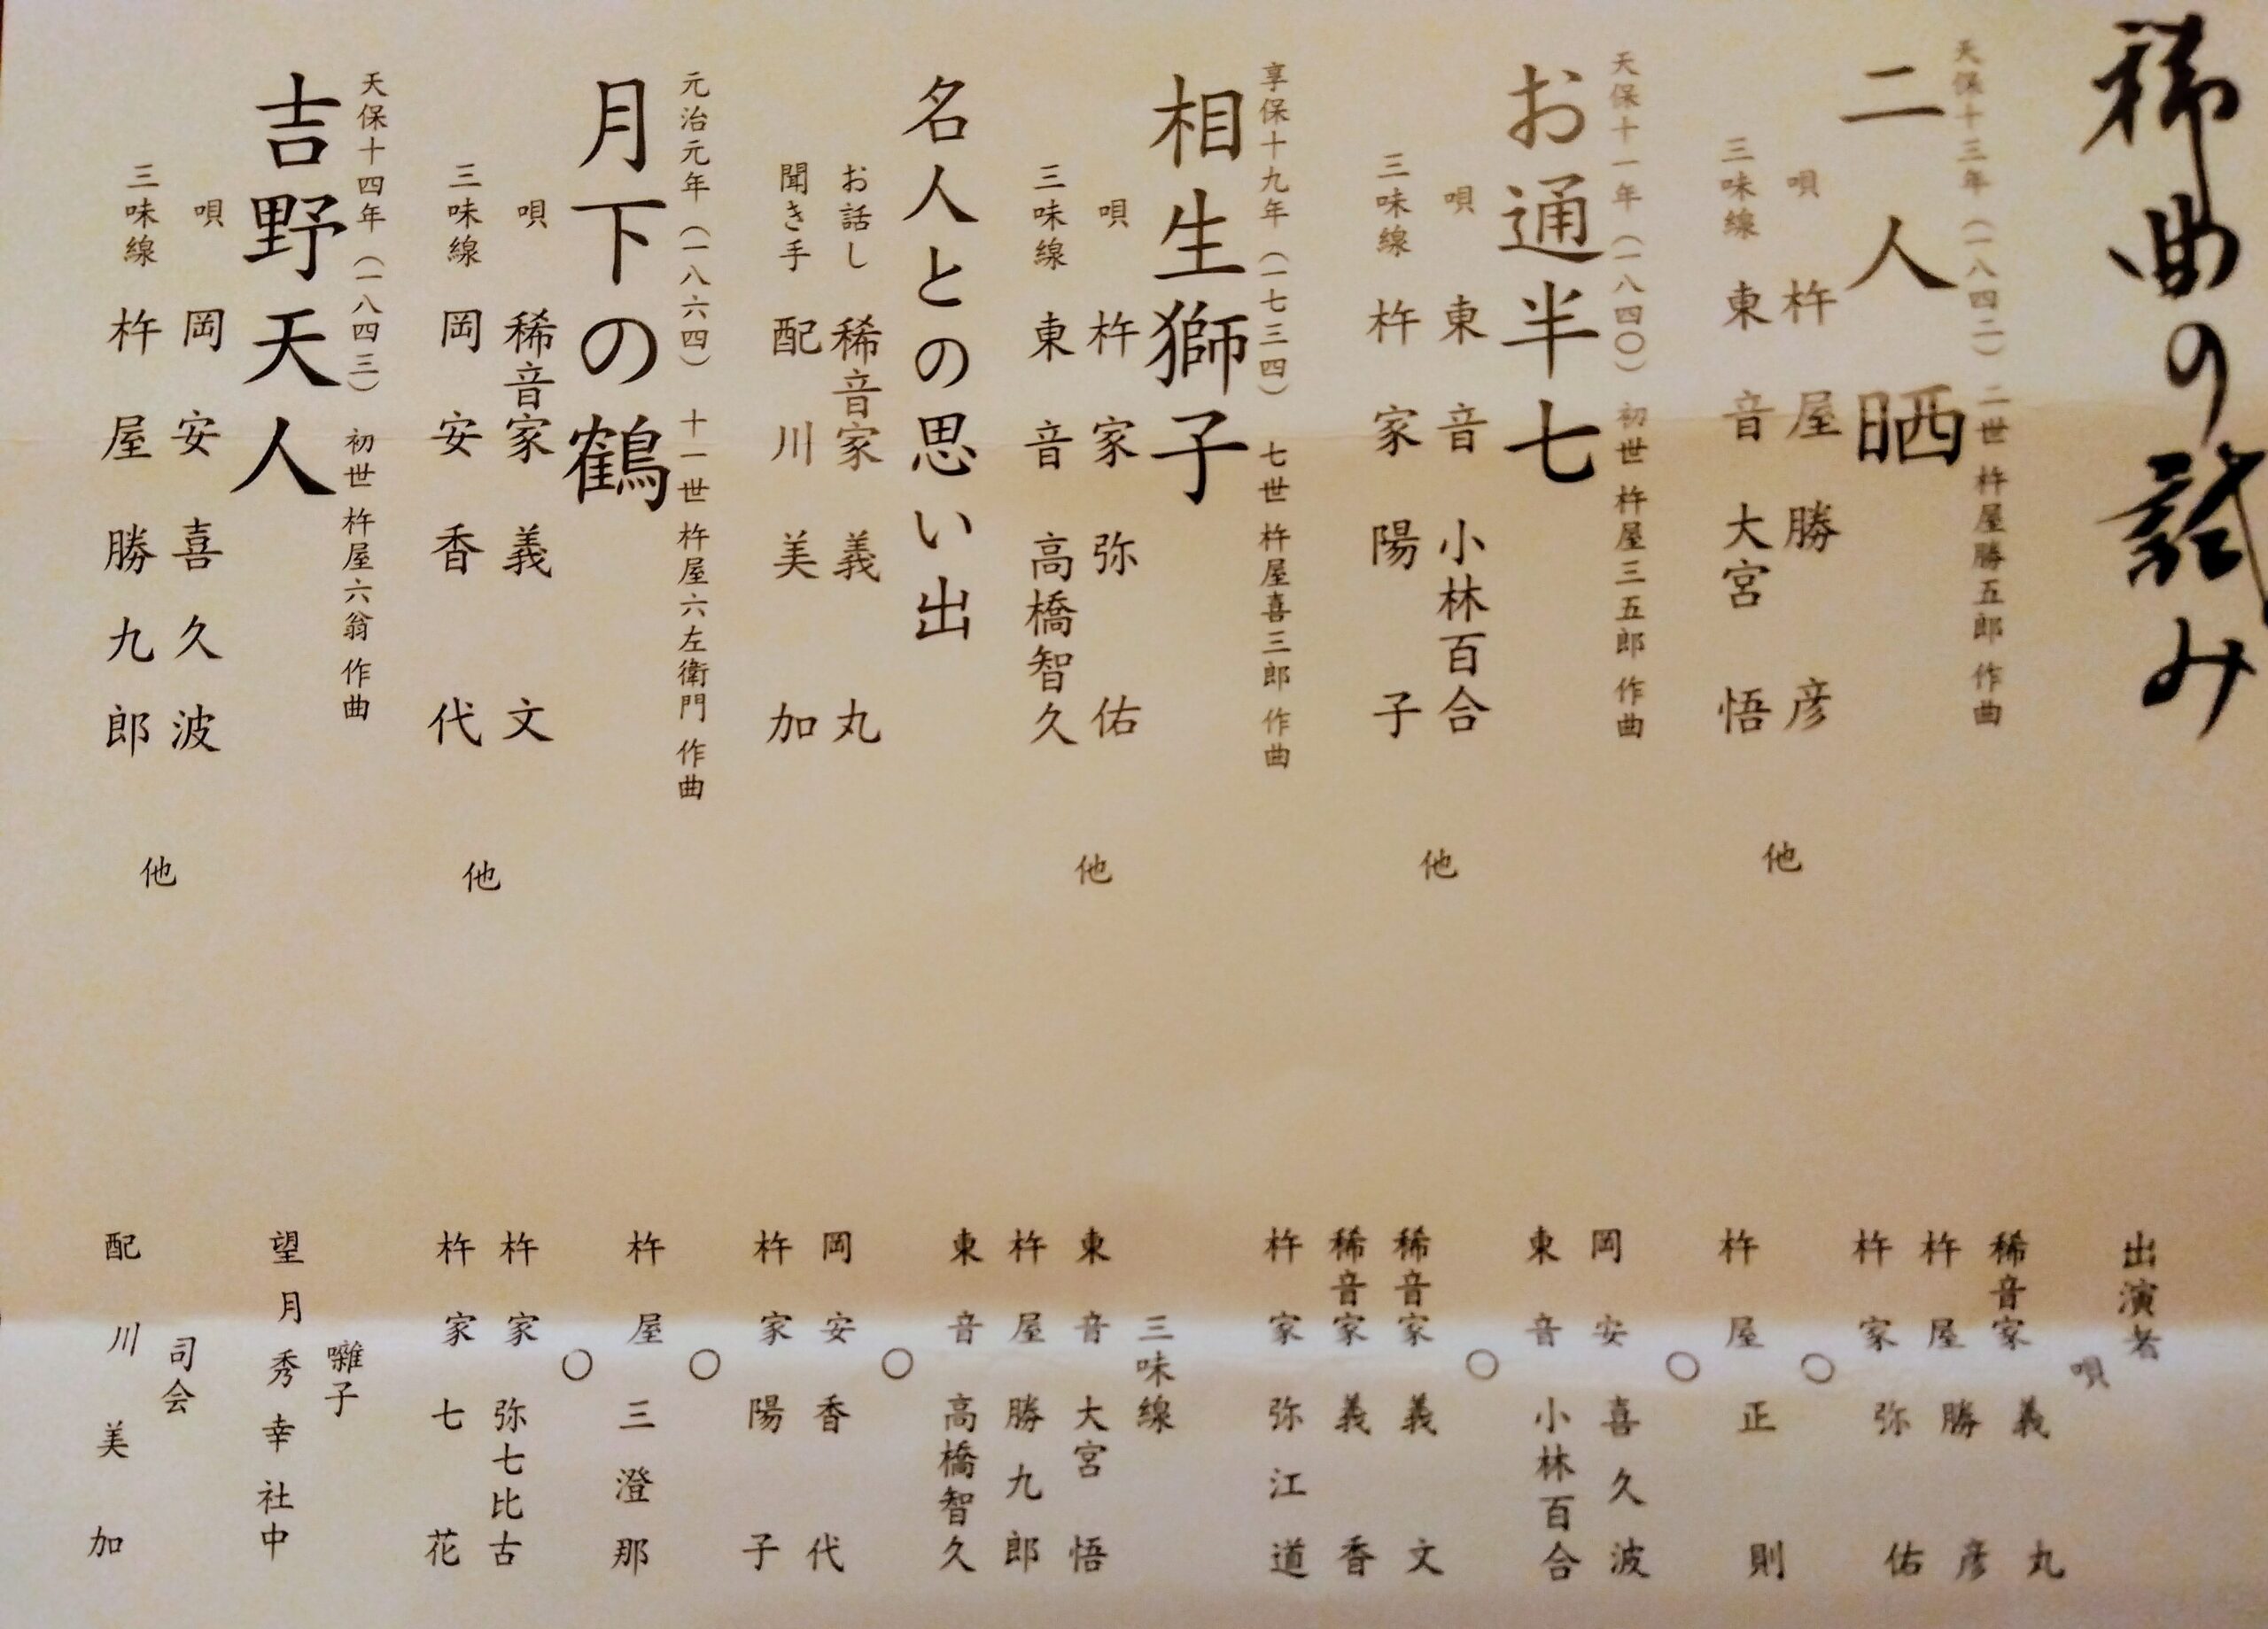 稀曲の試み
天保十三年（一八四二） 二世 杵屋勝五郎 作曲
二人晒
唄 杵屋勝彦
三味線 東音 大宮悟
他
天保十一年（一八四〇） 初世 杵屋三五郎 作曲
お通半七
唄 東音 小林百合
三味線 杵家陽子
他
享保十九年（一七三四） 七世 杵屋喜三郎 作曲
相生獅子
唄 杵家弥佑
三味線 東音 高橋智久
他
名人との思い出
お話し 稀音家義丸
聞き手 配川美加
元治元年（一八六四） 十一世 杵屋六左衛門 作曲
月下の鶴
唄 稀音家義文
三味線 岡安香代
他
天保十四年（一八四三） 初世 杵屋六翁 作曲
吉野天人
唄 岡安喜久波
三味線 杵屋勝九郎
他
出演者
唄
稀音家義丸
杵屋勝彦
杵家弥佑
○
杵屋正則
○
岡安喜久波
東音小林百合
○
稀音家義文
稀音家義香
杵家弥江道
三味線
東音大宮悟
杵屋勝九郎
東音高橋智久
○
岡安香代
杵家陽子
○
杵屋三澄那
○
杵家弥七比古
杵家七花
囃子
望月秀幸社中
司会
配川美加